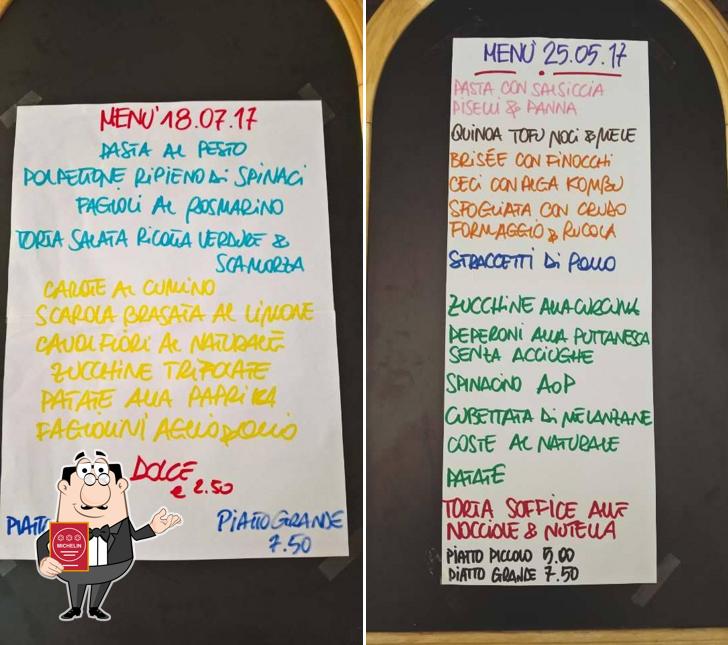 MENU' 18.07.17
PASTA AL PESTO
POLPETTONE RIPIENO DI SPINACI
FAGIOLI AL ROSMARINO
TORTA SALATA RICOTTA VERDURE &
SCAMORZA
CAROTE AL CUMINO
SCAROLA BRASATA AL LIMONE
CAVOLFIORI AL NATURALE
ZUCCHINE TRIFOLATE
PATATE ALLA PAPRIKA
FAGIOLINI AGLIO & OLIO
DOLCE
€ 2.50
PIATTO
PIATTO GRANDE
7.50
MICHELIN
MENU' 25.05.17
PASTA CON SALSICCIA
PISELLI & PANNA
QUINOA TOFU NOCI & MELE
BRISÉE CON FINOCCHI
CECI CON ALGA KOMBU
SFOGLIATA CON CRUDO
FORMAGGIO & RUCOLA
STRACCETTI DI POLLO
ZUCCHINE ALLA CURCUMA
PEPERONI ALLA PUTTANESCA
SENZA ACCIUGHE
SPINACINO AOP
CUBETTATA DI MELANZANE
COSTE AL NATURALE
PATATE
TORTA SOFFICE ALLE
NOCCIOLE & NUTELLA
PIATTO PICCOLO 5.00
PIATTO GRANDE 7.50